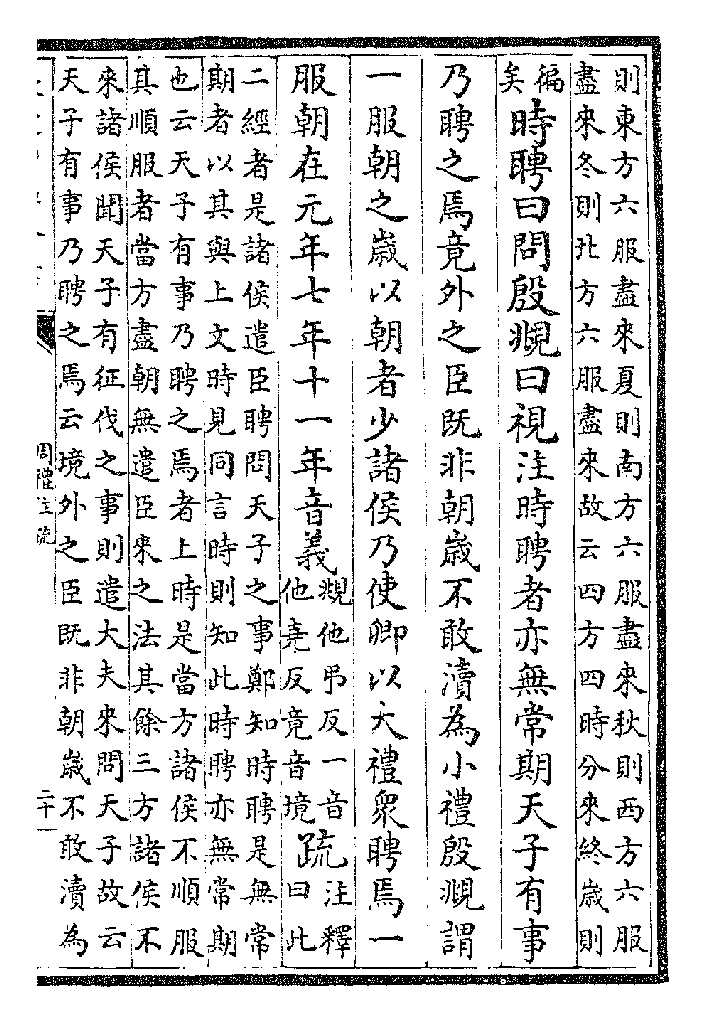 則東方六服盡來夏則南方六服盡來秋則西方六服
盡來冬則北方六服盡來故云四方四時分來終歲則
徧
矣
時聘曰問殷覜曰視注時聘者亦無常期天子有事
乃聘之焉竟外之臣既非朝歲不敢瀆為小禮殷覜謂
一服朝之歲以朝者少諸侯乃使卿以大禮眾聘焉一
服朝在元年七年十一年音義
覜他弔反一音
他堯反竟音境
疏
注釋
曰此
二經者是諸侯遣臣聘問天子之事鄭知時聘是無常
期者以其與上文時見同言時則知此時聘亦無常期
也云天子有事乃聘之焉者上時是當方諸侯不順服
其順服者當方盡朝無遣臣來之法其餘三方諸侯不
來諸侯聞天子有征伐之事則遣大夫來問天子故云
天子有事乃聘之焉云境外之臣既非朝歲不敢瀆為
周禮注疏
二十